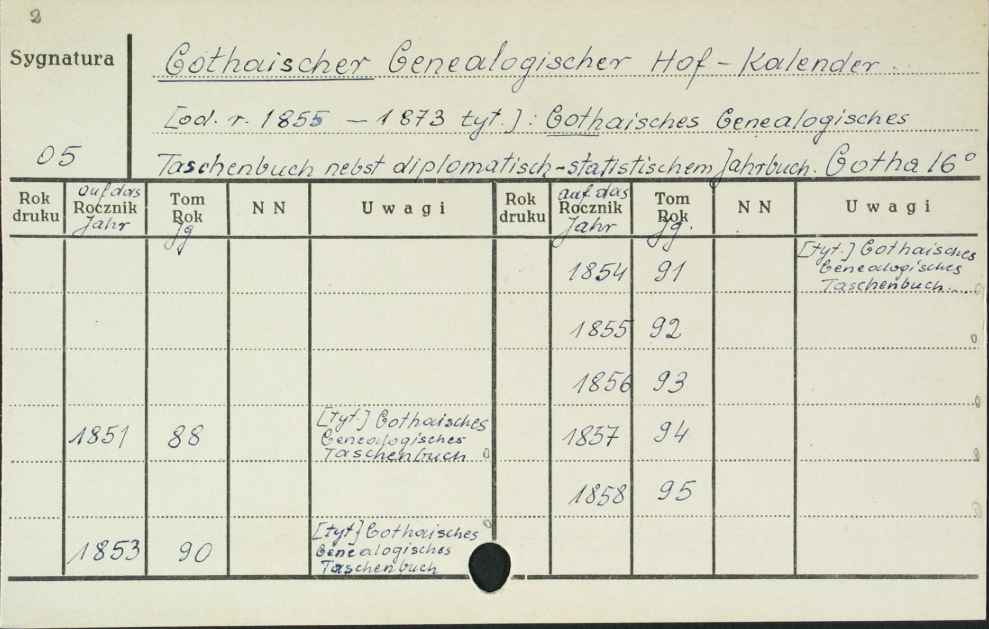 2
Sygnatura
Gothaischer Genealogischer Hof-Kalender
[od. r. 1855 – 1873 tyt.]: Gothaisches Genealogisches
05
Taschenbuch nebst diplomatisch-statistischem Jahrbuch. Gotha 16°
Rok druku
auf das Rocznik Jahr
Tom Rok Jg
NN
Uwagi
Rok druku
auf das Rocznik Jahr
Tom Rok Jg.
NN
Uwagi
1854 91 [tyt.] Gothaisches
Genealogisches
Taschenbuch...
1855 92
1856 93
1851 88 [tyt.] Gothaisches
Genealogisches
Taschenbuch
1857 94
1858 95
1853 90 [tyt] Gothaisches
Genealogisches
Taschenbuch